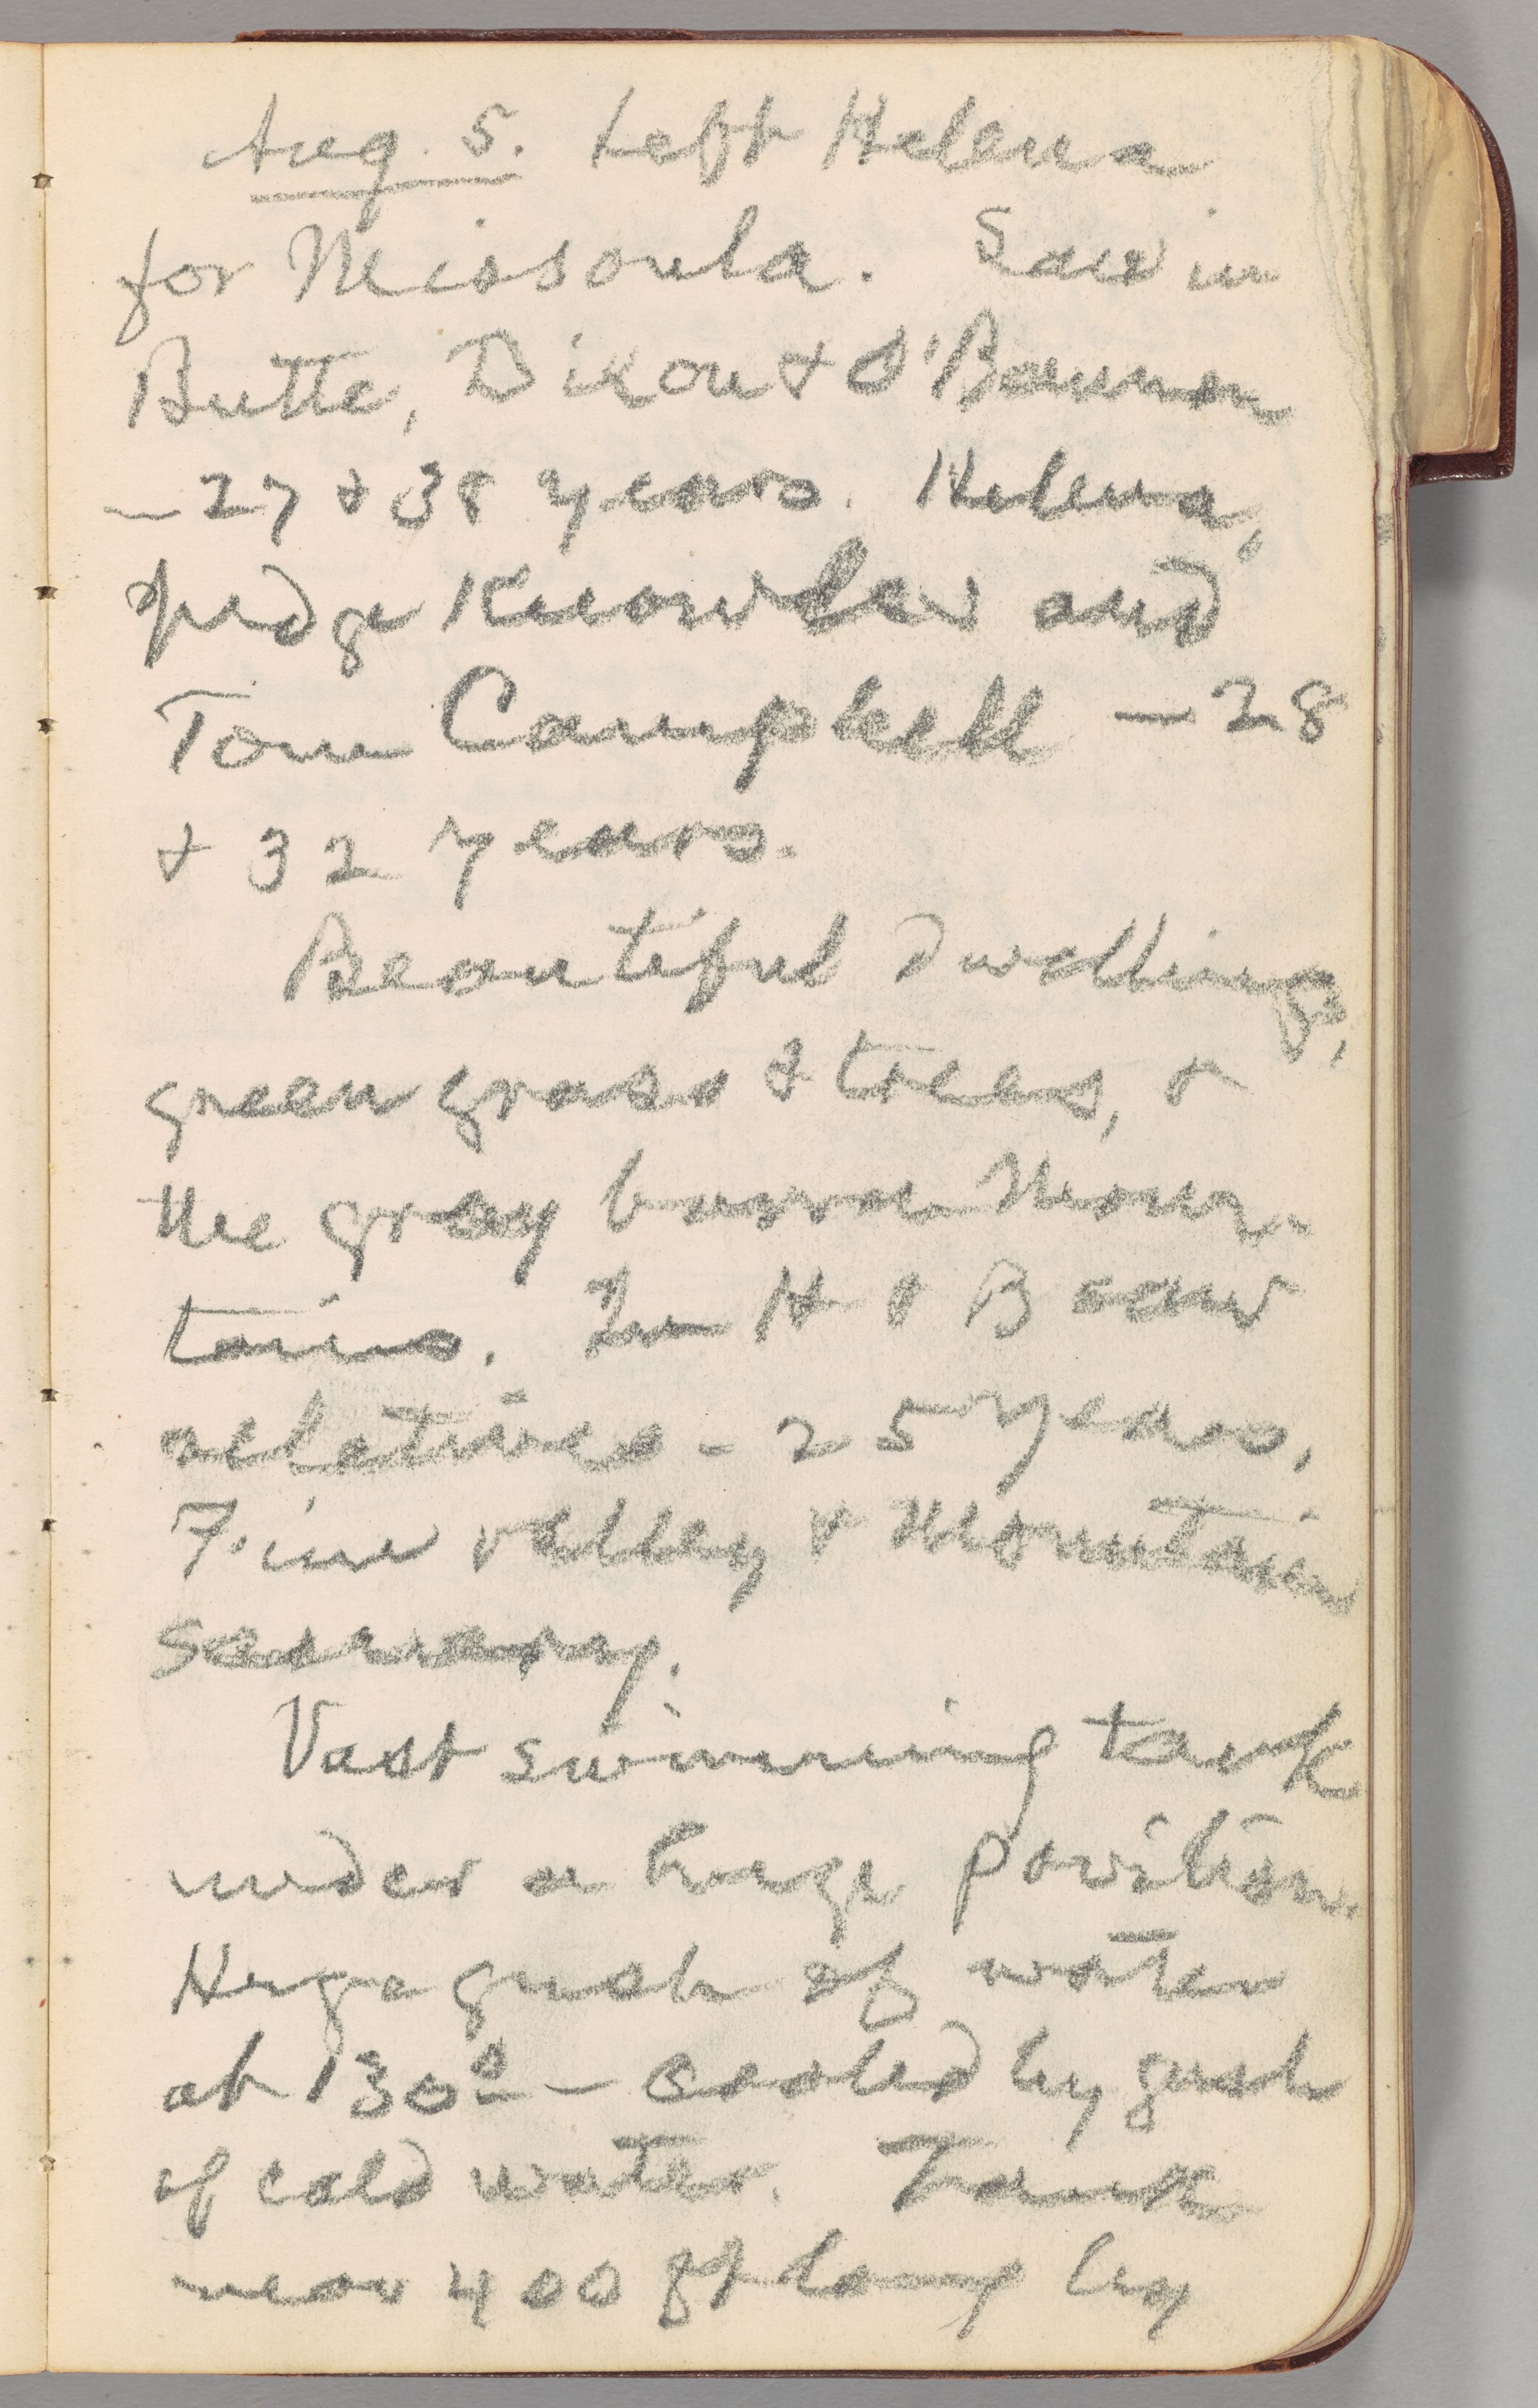 Aug. 5. Left Helena
for Missoula. Saw in
Butte, Dixon & O'Bannon
— 27 & 38 years. Helena,
Judge Knowles and
Tom Campbell — 28
& 32 years.
Beautiful dwellings,
green grass & trees, &
the gray barren Moun-
tains. In H & B saw
relatives - 25 years,
Fine valley & mountain
scenery.
Vast swimming tank
under a huge pavilion.
Huge gush of water
at 130° — cooled by gush
of cold water. Tank
near 400 ft long by